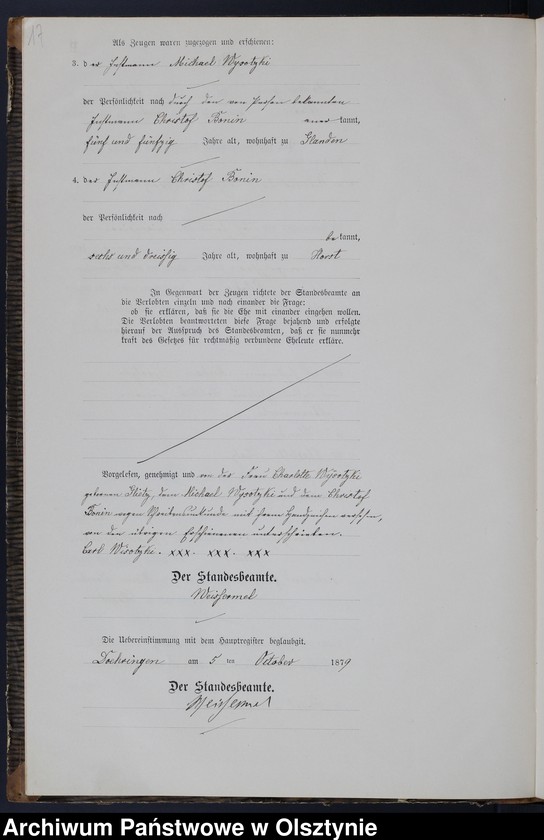 17
Als Zeugen waren zugezogen und erschienen:
3. der Instmann Michael Wysotzki
der Persönlichkeit nach durch den von Person bekannten
Instmann Christof Bonin anerkannt,
fünf und fünfzig Jahre alt, wohnhaft zu Glanden
4. der Instmann Christof Bonin
der Persönlichkeit nach
bekannt,
sechs und dreißig Jahre alt, wohnhaft zu Horst
In Gegenwart der Zeugen richtete der Standesbeamte an
die Verlobten einzeln und nach einander die Frage:
ob sie erklären, daß sie die Ehe mit einander eingehen wollen.
Die Verlobten beantworteten diese Frage bejahend und erfolgte
hierauf der Ausspruch des Standesbeamten, daß er sie nunmehr
kraft des Gesetzes für rechtmäßig verbundene Eheleute erkläre.
Vorgelesen, genehmigt und von der Frau Charlotte Wysotzki
geborenen dem Michael Wysotzki und dem Christof
Bonin wegen Schreibensunkunde mit ihrem Handzeichen versehen,
von den übrigen Erschienenen unterschrieben.
Carl Wisotzki. xxx. xxx. xxx
Der Standesbeamte.
Weissermel
Die Uebereinstimmung mit dem Hauptregister beglaubigt.
Doehringen am 5 ten October 1879
Der Standesbeamte.
Weissermel
Archiwum Państwowe w Olsztynie